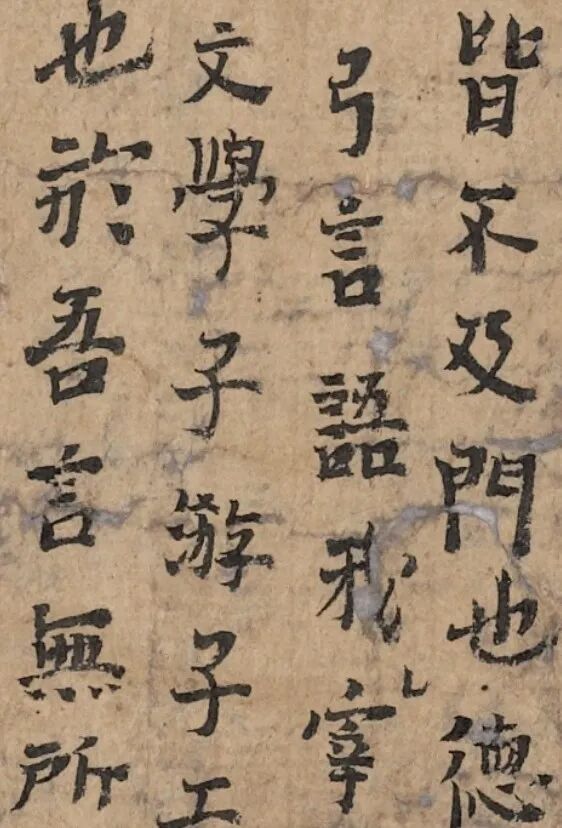 皆不及門也德
弓言語我宰
文學子游子工
也於吾言無所